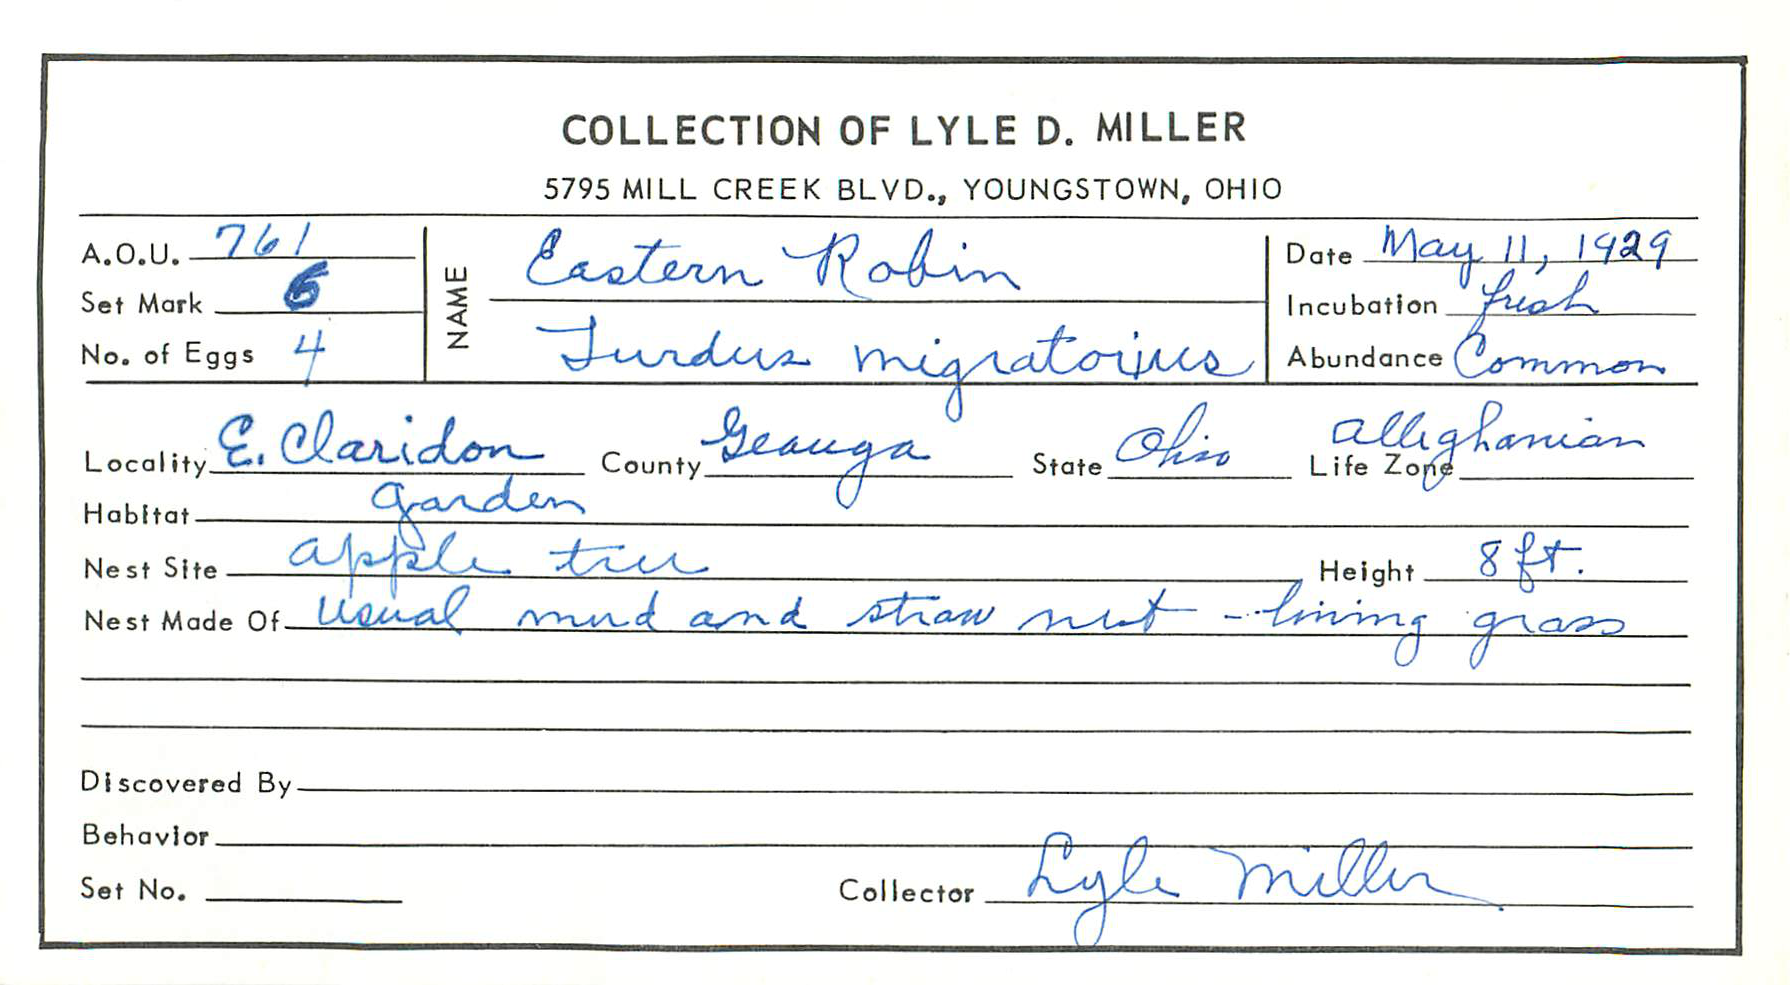 COLLECTION OF LYLE D. MILLER
5795 MILL CREEK BLVD., YOUNGSTOWN, OHIO
A.O.U. 761
Set Mark 6
No. of Eggs 4
NAME
Eastern Robin
Turdus migratorius
Date May 11, 1929
Incubation fresh
Abundance Common
Locality E. Claridon County Geauga State Ohio Life Zone Alleghanian
Habitat garden
Nest Site apple tree Height 8 ft.
Nest Made Of usual mud and straw nest - lining grass
Discovered By
Behavior
Set No. Collector Lyle Miller